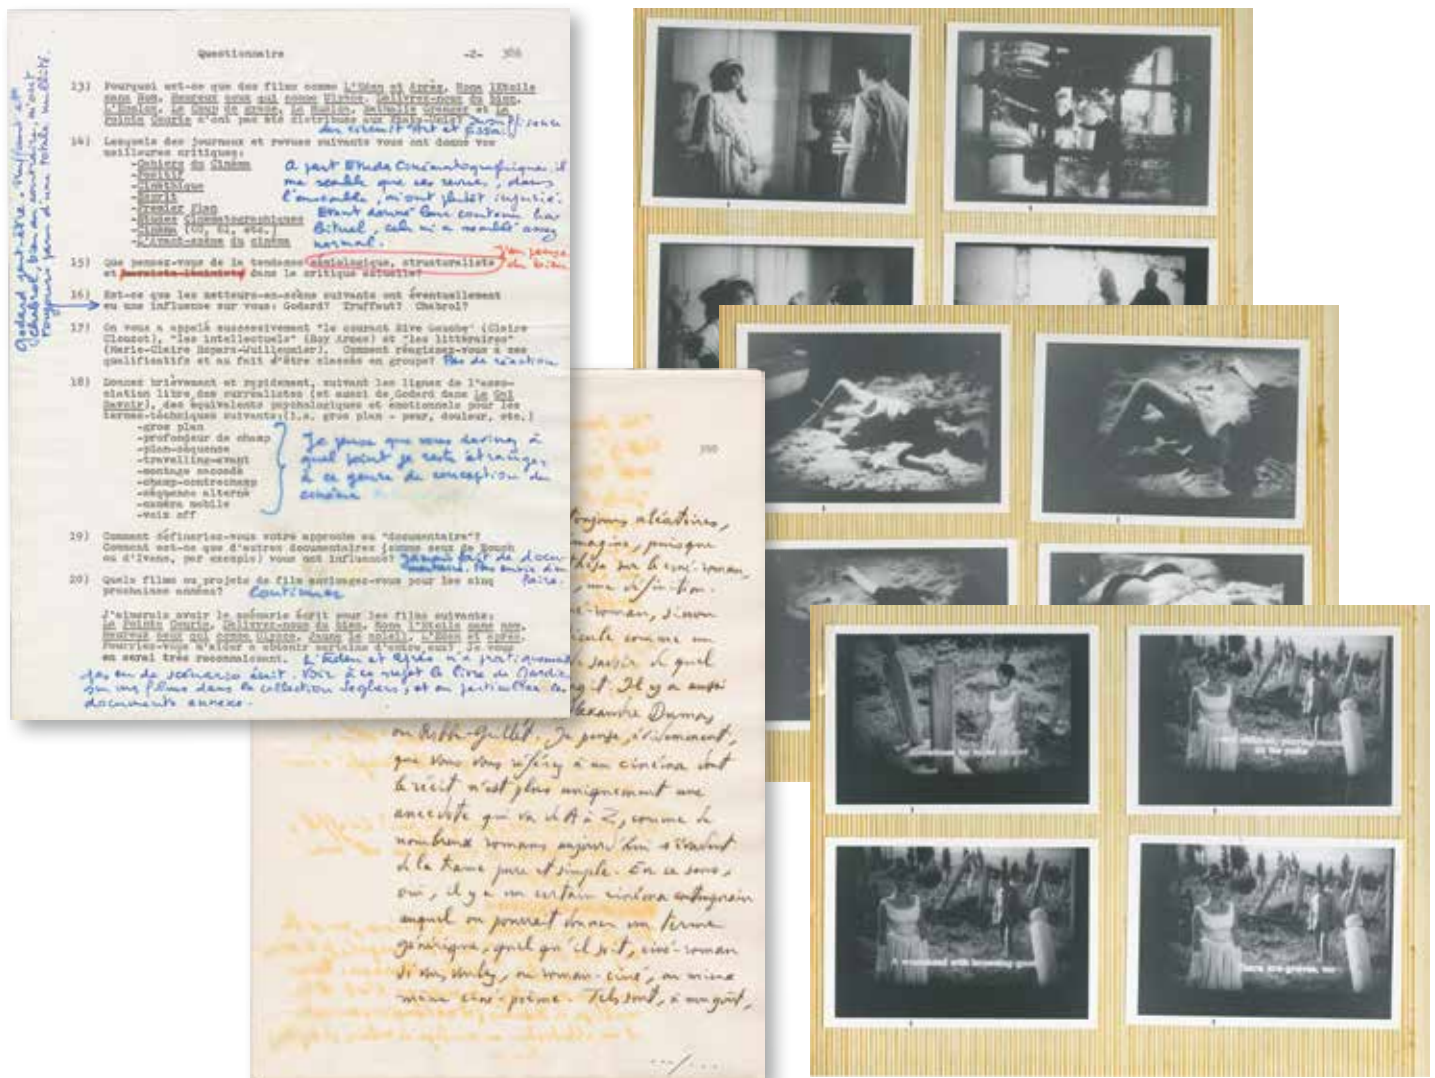 Questionnaire -2- 386
13) Pourquoi est-ce que des films comme L'Eden et Après, Nona l'Etoile
sans Nom, Heureux ceux qui comme Ulysse, Délivrez-nous du bien,
L'Emploi, Le Coup de grâce, La Maison, Nathalie Granger et La
Pointe Courte n'ont pas été distribués aux Etats-Unis? Insuffisance
des circuits Art et Essai.
14) Lesquels des journaux et revues suivants vous ont donné vos
meilleures critiques:
-Cahiers du Cinéma
-Positif
-Cinéthique
-Esprit
-Premier Plan
-Etudes Cinématographiques
-Cinéma (60, 61, etc.)
-L'Avant-scène du cinéma
A part Etudes Cinématographiques, il
me semble que ces revues, dans
l'ensemble, m'ont plutôt injurié.
Etant donné leur contenu ha-
bituel, cela m'a semblé assez
normal.
15) Que pensez-vous de la tendance sémiologique, structuraliste
et marxiste-léniniste dans la critique actuelle?
j'en pense
du bien
16) Est-ce que les metteurs-en-scène suivants ont éventuellement
eu une influence sur vous: Godard? Truffaut? Chabrol?
Godard peut-être. Truffaut et
Chabrol, bien au contraire, m'ont
toujours paru d'une totale nullité.
17) On vous a appelé successivement "le courant Rive Gauche" (Claire
Clouzot), "les intellectuels" (Roy Armes) et "les littéraires"
(Marie-Claire Ropars-Wuilleumier). Comment réagissez-vous à ces
qualificatifs et au fait d'être classés en groupe? Pas de réaction
18) Donnez brièvement et rapidement, suivant les lignes de l'asso-
ciation libre des surréalistes (et aussi de Godard dans Le Gai
Savoir), des équivalents psychologiques et émotionnels pour les
termes-techniques suivants: (i.e. gros plan - peur, douleur, etc.)
-gros plan
-profondeur de champ
-plan-séquence
-travelling-avant
-montage saccadé
-champ-contrechamp
-séquence alterné
-caméra mobile
-voix off
Je pense que vous devinez à
quel point je reste étranger
à ce genre de conception du
cinéma
19) Comment définiriez-vous votre approche au "documentaire"?
Comment est-ce que d'autres documentaires (comme ceux de Rouch
ou d'Ivens, par exemple) vous ont influencé? Jamais fait de docu-
mentaire. Pas envie d'en
faire.
20) Quels films ou projets de film envisagez-vous pour les cinq
prochaines années? Continuer
J'aimerais avoir le scénario écrit pour les films suivants:
La Pointe Courte, Délivrez-nous du bien, Nona l'Etoile sans nom,
Heureux ceux qui comme Ulysse, Jaune le soleil, L'Eden et après.
Pourriez-vous m'aider à obtenir certains d'entre eux? Je vous
en serai très reconnaissant. L'Eden et Après n'a pratiquement
pas eu de scénario écrit. Voir à ce sujet le livre de Gardies
sur mes films dans la collection Seghers, et en particulier les
documents annexes.
toujours aléatoires,
magine, puisque
thèse sur le ciné-roman,
une définition.
né-roman, sinon
icule comme un
savoir de quel
agit. Il y a aussi
Alexandre Dumas
ou Robbe-Grillet. Je pense, évidemment,
que vous vous référez à un cinéma dont
le récit n'est plus uniquement une
anecdote qui va de A à Z, comme de
nombreux romans aujourd'hui s'évadent
de la trame pure et simple. En ce sens,
oui, il y a un certain cinéma contemporain
auquel on pourrait donner un terme
générique, quel qu'il soit, ciné-roman
si vous voulez, ou roman-ciné, ou mieux
même ciné-poème. Tels sont, à mon goût,
.../...
A wasteland with browning grass
There are graves, too